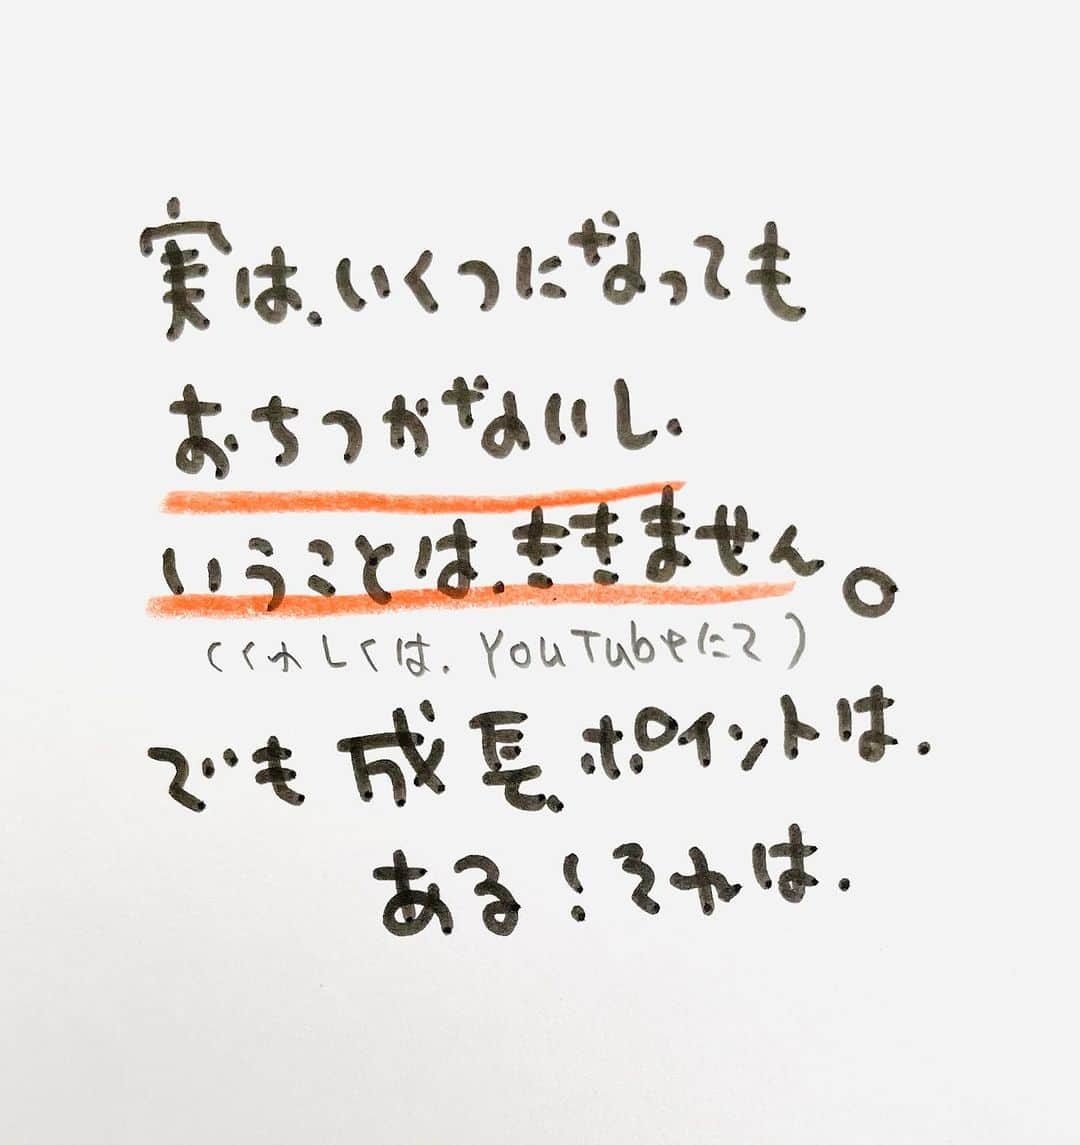 実は、いくつになっても
おちつかないし、
いうことは、ききません。
(くわしくは、YouTubeにて)
でも成長ポイントは、
ある!それは、